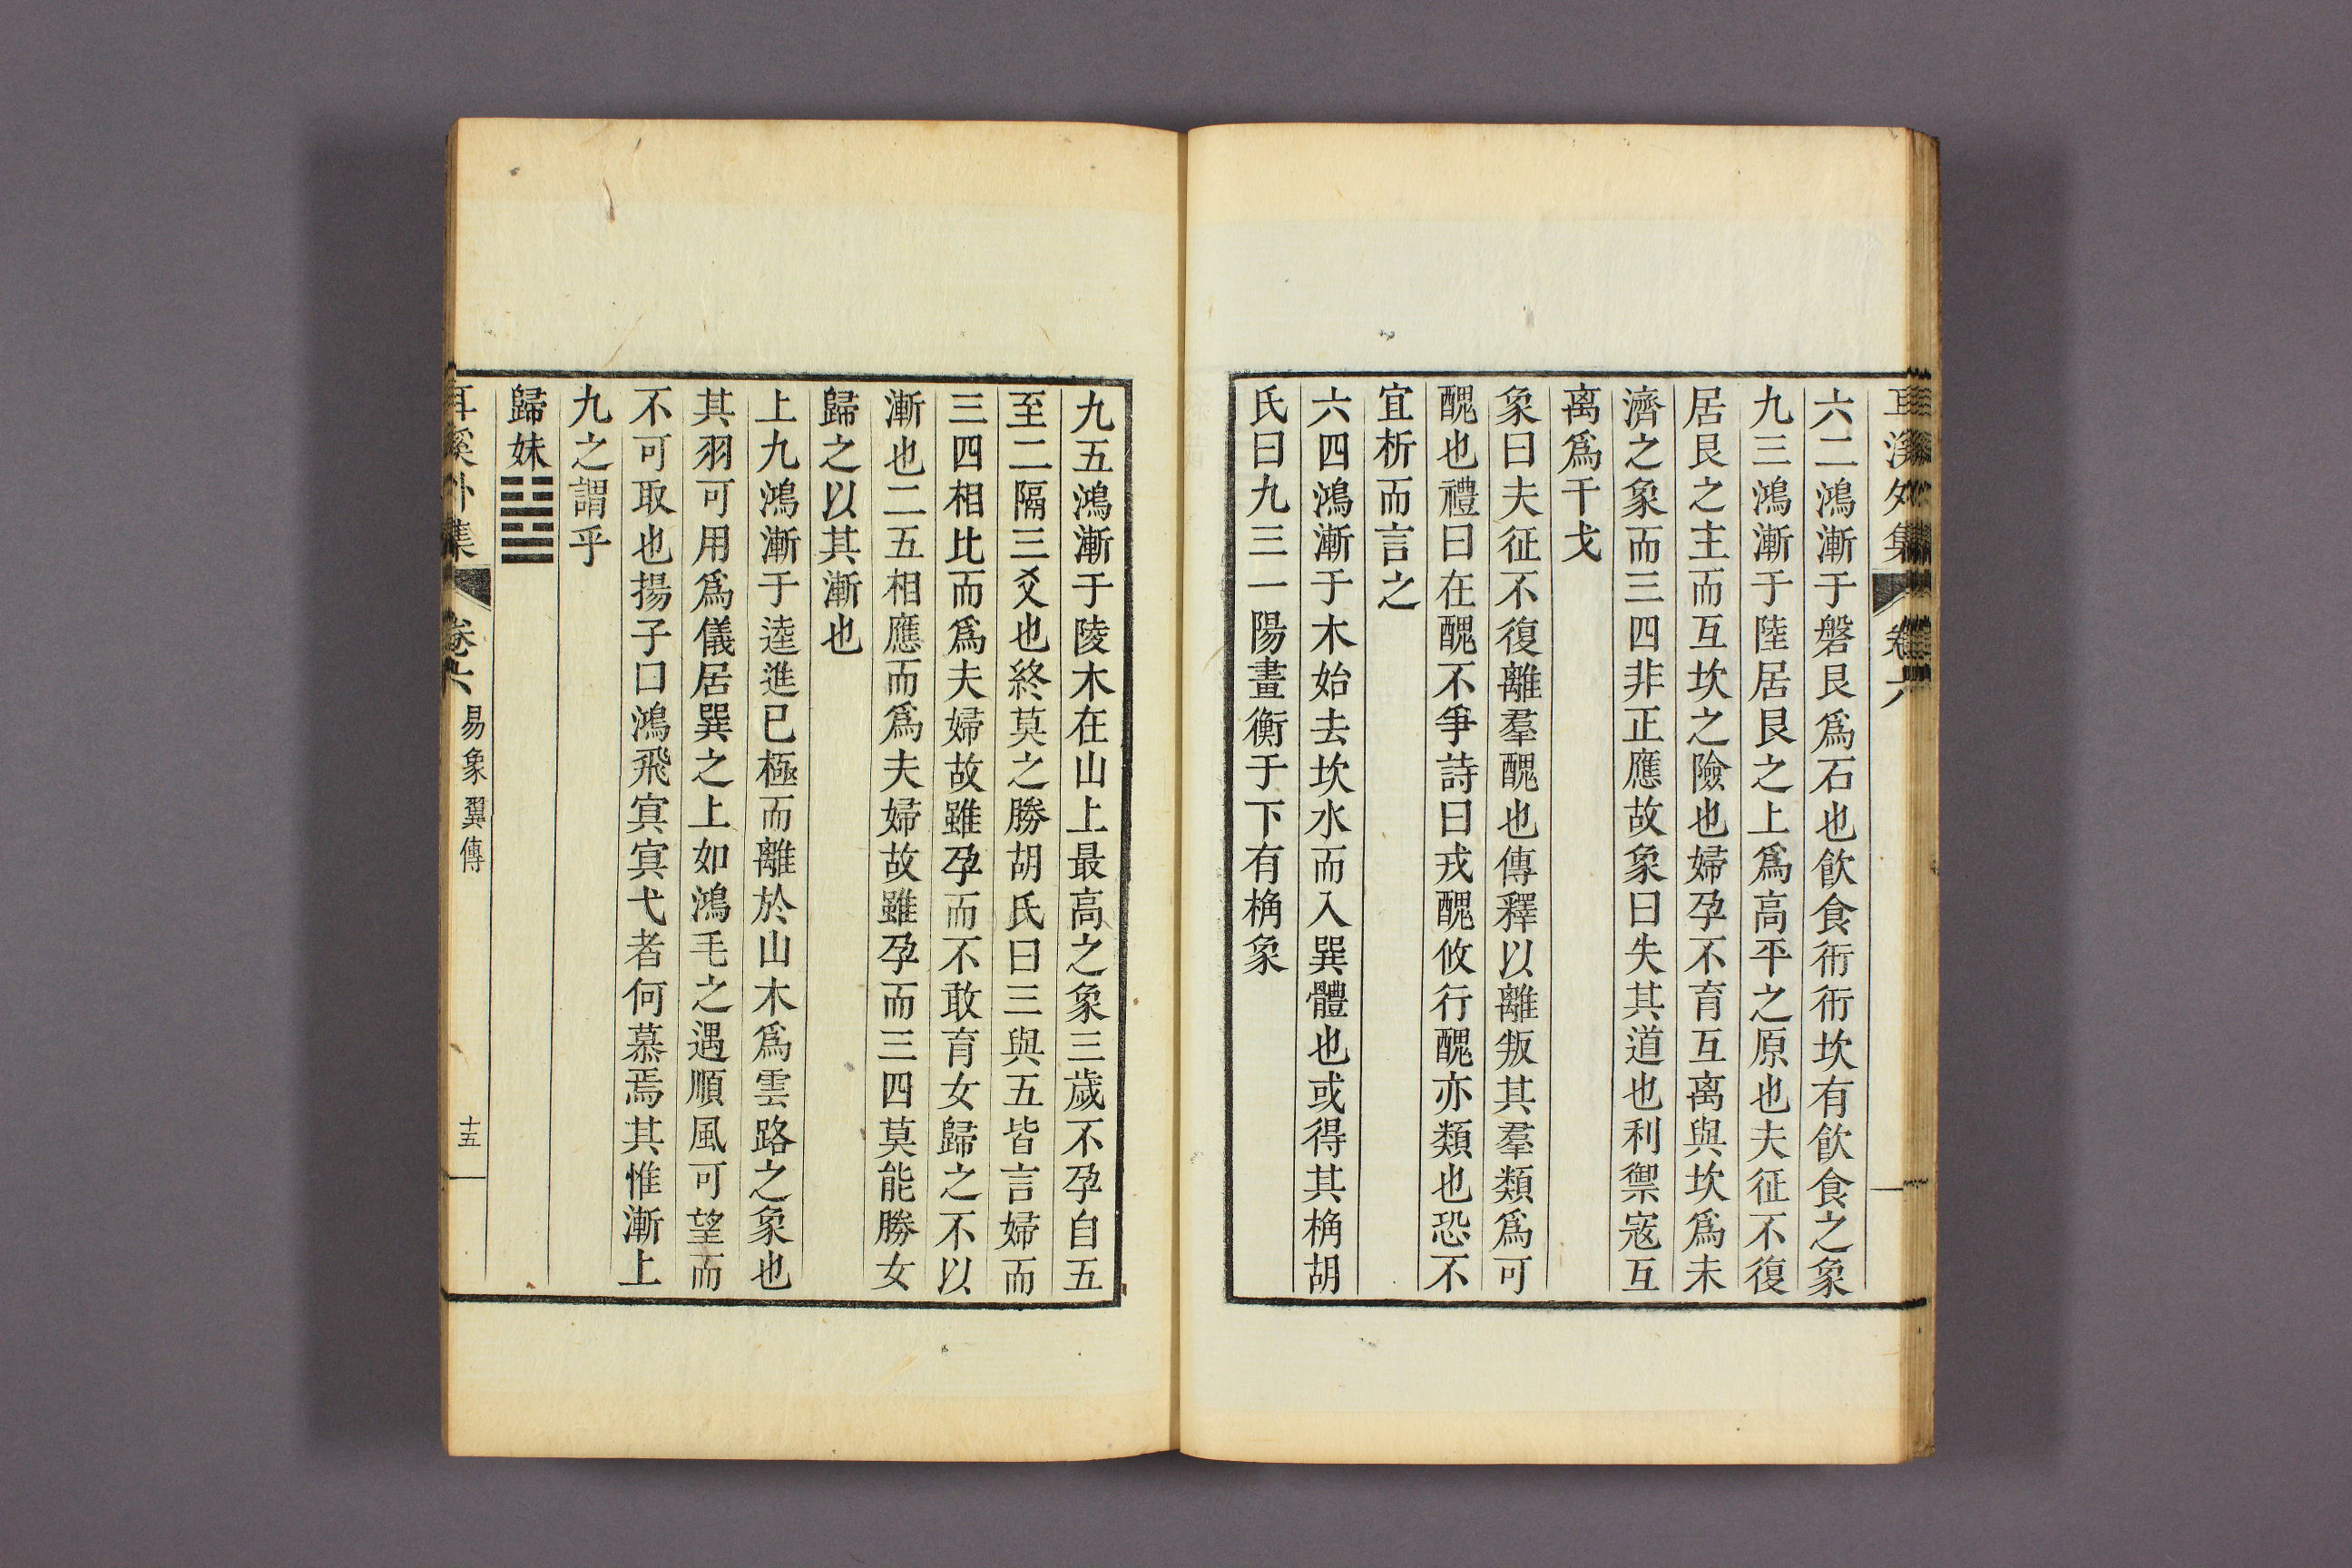 耳溪外集 卷六
六二鴻漸于磐艮爲石也飮食衎衎坎有飮食之象
九三鴻漸于陸居艮之上爲高平之原也夫征不復
居艮之主而互坎之險也婦孕不育互离與坎爲未
濟之象而三四非正應故象曰失其道也利禦寇互
离爲干戈
象曰夫征不復離羣醜也傳釋以離叛其羣類爲可
醜也禮曰在醜不爭詩曰戎醜攸行醜亦類也恐不
宜析而言之
六四鴻漸于木始去坎水而入巽體也或得其桷胡
氏曰九三一陽畫衡于下有桷象
九五鴻漸于陵木在山上最高之象三歲不孕自五
至二隔三爻也終莫之勝胡氏曰三與五皆言婦而
三四相比而爲夫婦故雖孕而不敢育女歸之不以
漸也二五相應而爲夫婦故雖孕而三四莫能勝女
歸之以其漸也
上九鴻漸于逵進已極而離於山木爲雲路之象也
其羽可用爲儀居巽之上如鴻毛之遇順風可望而
不可取也揚子曰鴻飛寘寘弋者何慕焉其惟漸上
九之謂乎
歸妹
耳溪外集 卷六 易象翼傳 十五